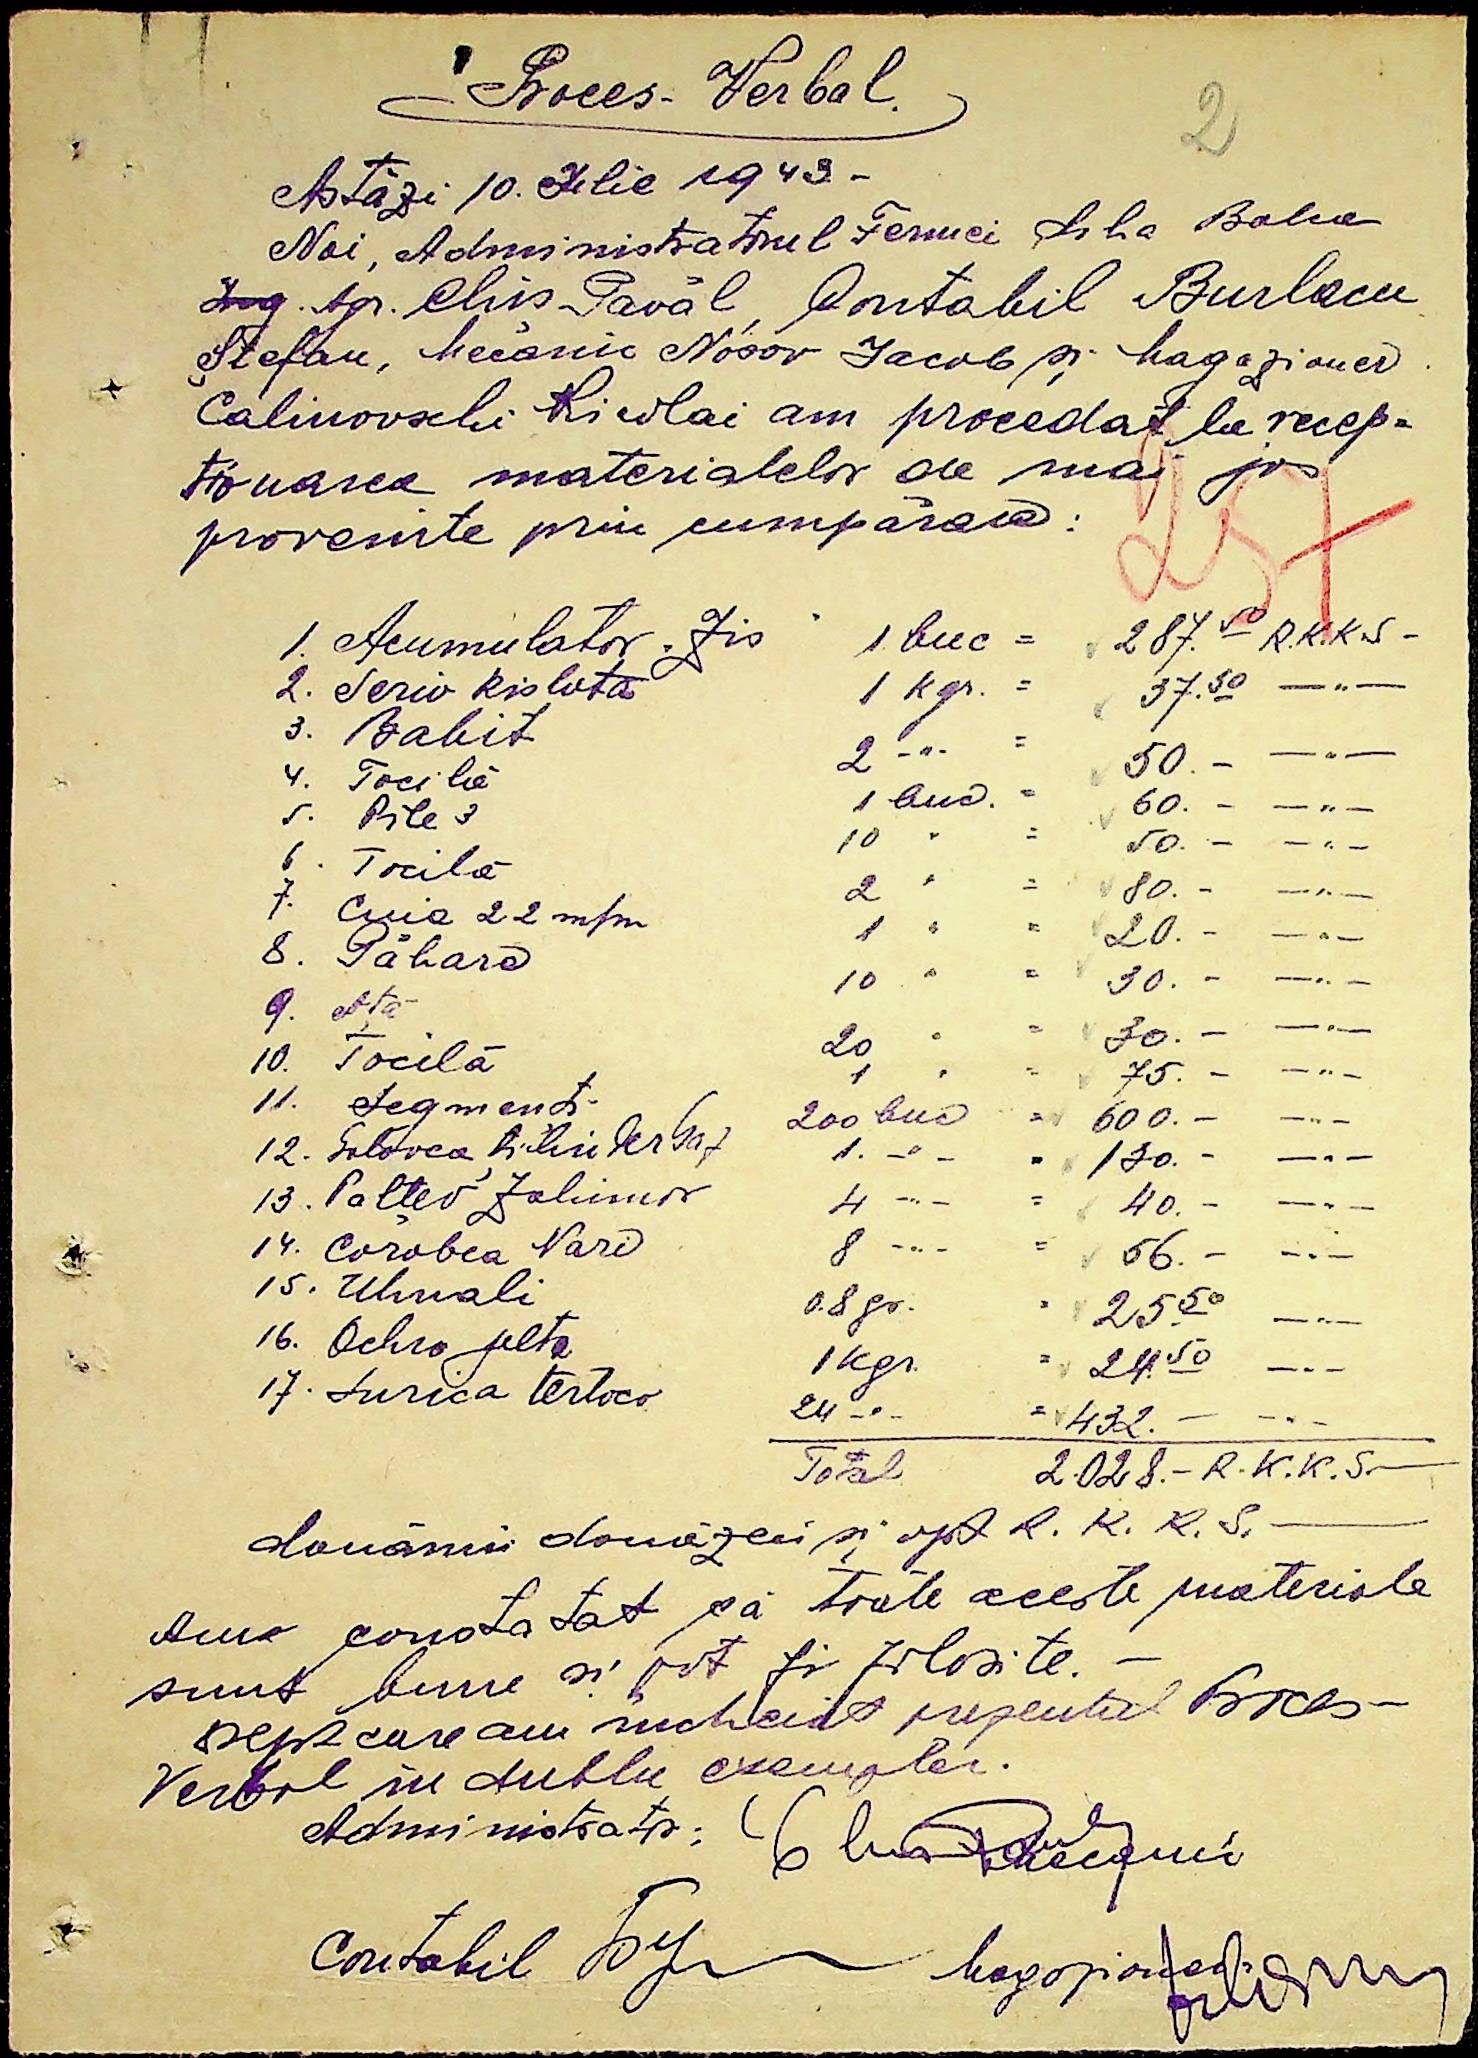 Proces-Verbal.
2
Astăzi 10. Iulie 1943-
Noi, Administratorul Fermei Balca
Agr. Chis Pavăl, Contabil Burlacu
Ștefan, Mecanic Nosov Iacob și Magazioner
Calinovschi Nicolai am procedat la recep-
ționarea materialelor de mai jos
provenite prin cumpărare:
257
1. Acumulator Zis 1 buc = 287.50 R.K.K.S-
2. Serio Kislota 1 kgr. = 37.50 —"—
3. Babit 2 -"- = 50.- —"—
4. Tocilă 1 buc. = 60.- —"—
5. Pile 3 10 " = 50.- —"—
6. Tocilă 2 " = 80.- —"—
7. Cuia 22 m/m 1 " = 20.- —"—
8. Păhară 10 " = 30.- —"—
9. Ață 20 " = 30.- —"—
10. Tocilă 1 " = 75.- —"—
11. Segmenti 200 buc = 600.- —"—
12. Golovca 1. -"- = 130.- —"—
13. Palțev 4 -"- = 40.- —"—
14. Corobca Nară 8 -"- = 56.- —"—
15. Uhnali 0.8 gr. " 25.50 —"—
16. Ochro jelta 1 Kgr. = 24.50 —"—
17. Surica 24 -"- = 432.- —"—
Total 2.028.- R.K.K.S.—
douămii douăzeci și opt R.K.K.S.—
Am constatat că toate aceste materiale
sunt bune și pot fi folosite.-
Dept care am incheiat prezentul Proces-
Verbal in dublu exemplar.
Administrator: Mecanic
Contabil Magazioner